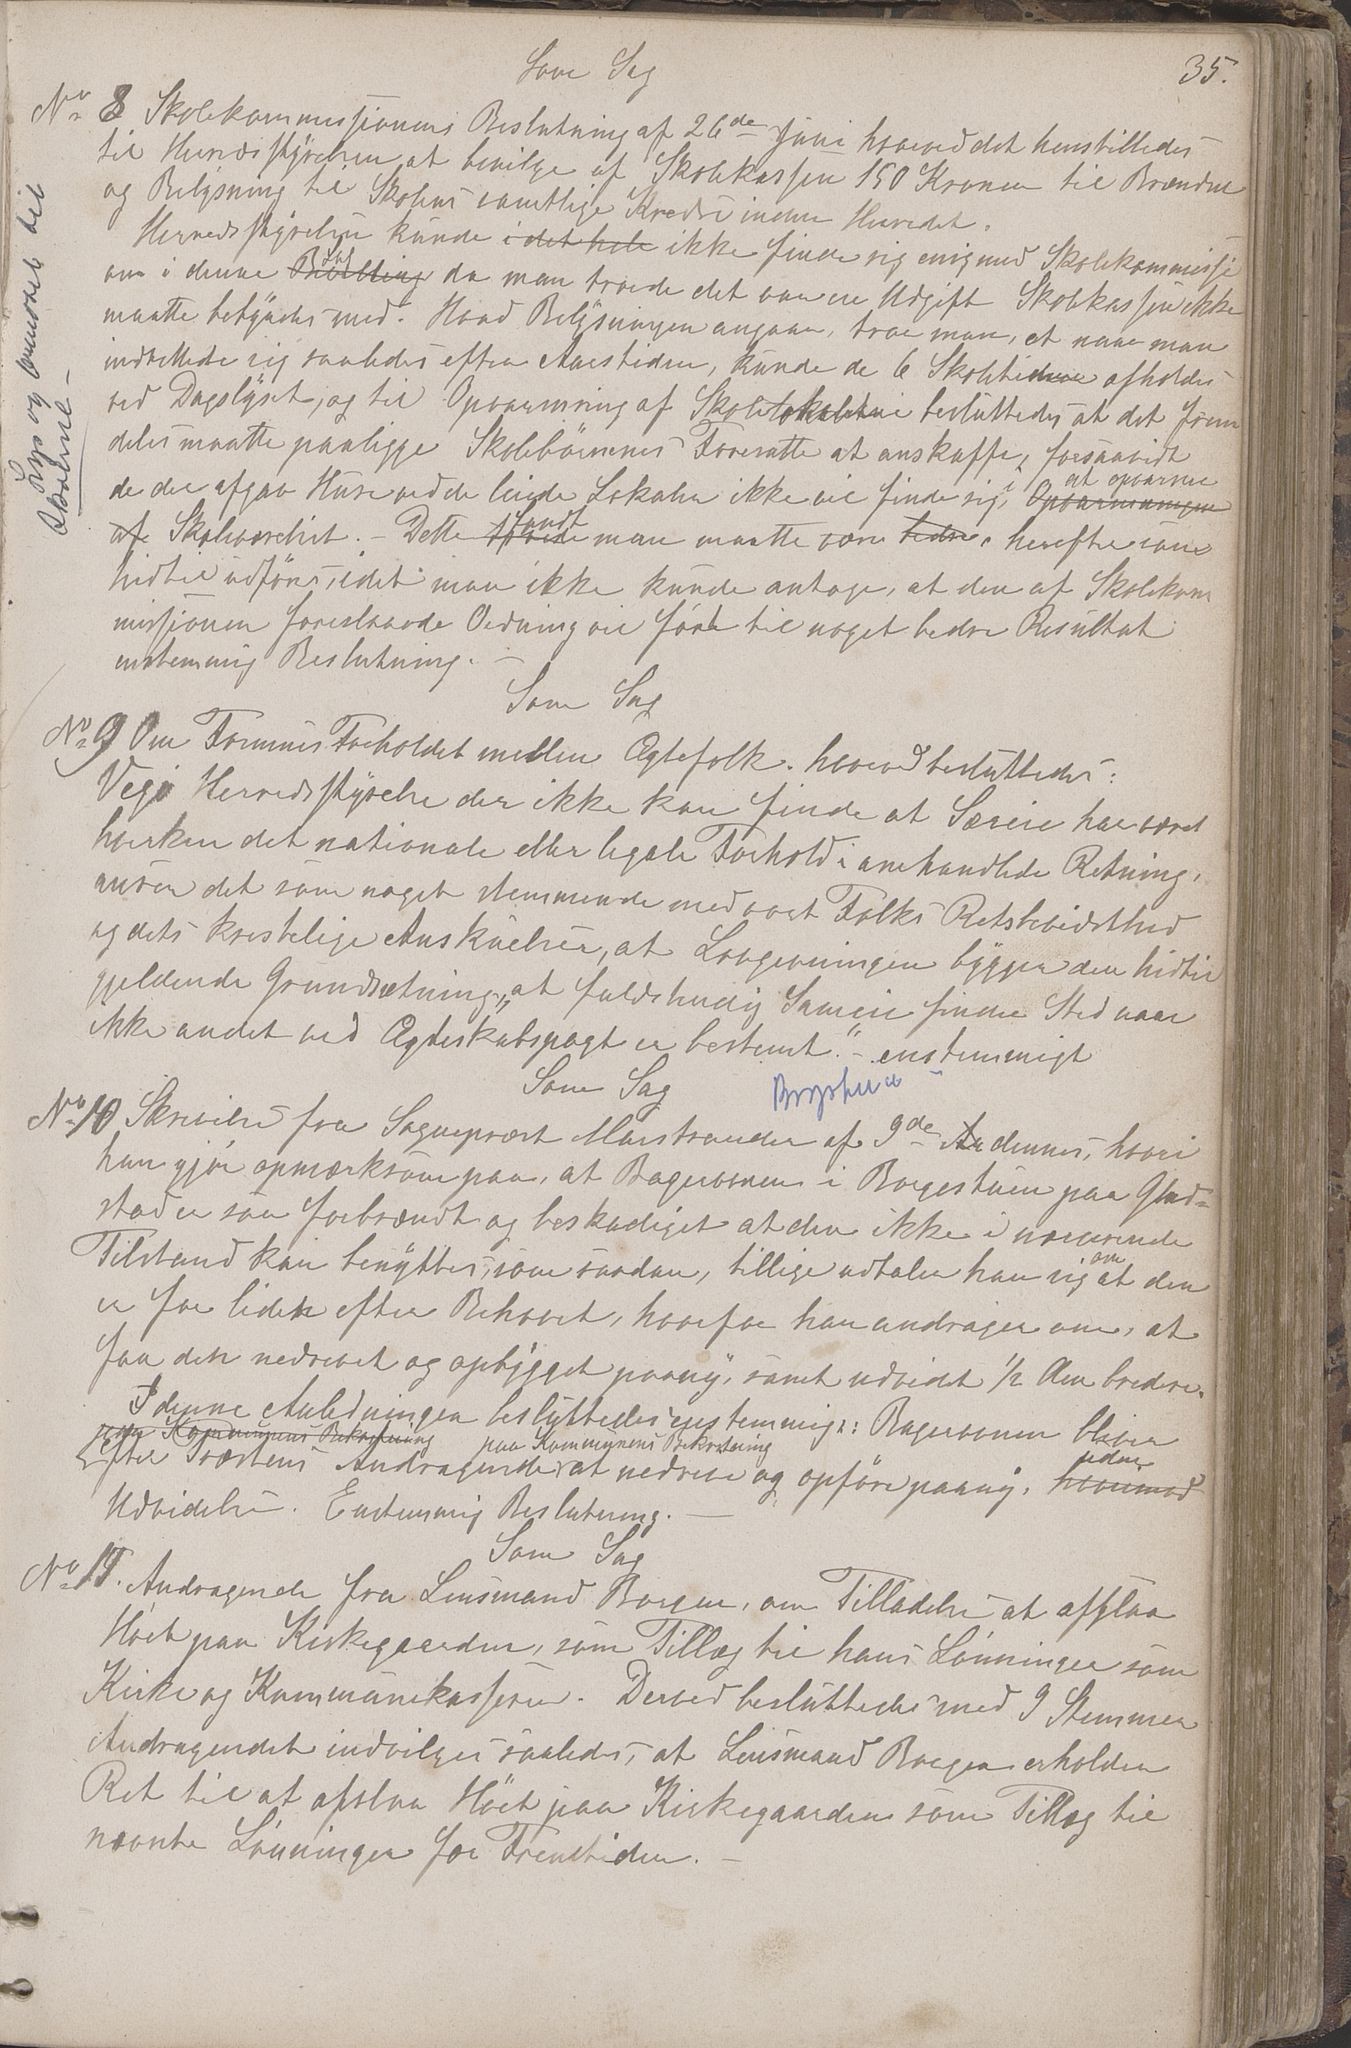 35.
Som Sag
No 8 Skolekommissionens Beslutning af 26de Juni hvorved det henstilledes
til Herredsstyrelsen at bevilge af Skolekassen 150 Kroner til Brændsel
og Belysning til Skolens samtlige Kredse inden Herredet.
Herredsstyrelsen kunde i det hele ikke finde sig enig med Skolekommissi
on i denne Besl da man troede det var en Udgift Skolekassen ikke
maatte betyndes med. Hvad Belysningen angaar, tror man, at naar man
indrettede sig saaledes efter Aarstiden, kunde de 6 Skoletimer afholdes
ved Dagslyset, og til Opvarmning af Skolelokalerne besluttedes at det frem
deles maatte paaligge Skolebörnenes Foresatte at anskaffe, forsaavidt
de der afgav Huse ved de leiede Lokaler ikke vil finde sig i at opvarme Opvarmningen
af Skoleværelset. - Dette fandt troede man maatte være bedre, herefter som
hidtil udföres, idet man ikke kunde antage, at den af Skolekom
missionen foreslaaede Ordning vil före til noget bedre Resultat
enstemmig Beslutning. -
Lys og brændsel til
skolerne -
Som Sag
No 9 Om Formues Forholdet mellem Ægtefolk. hvorved besluttedes:
Vegø Herredsstyrelse der ikke kan finde at Særeie har været
hverken det nationale eller legale Forhold i omhandlede Retning,
anser det som noget stemmende med vort Folks Retsbevidsthed
og dets kristelige Anskuelser, at Lovgivningen bygger den hidtil
gjeldende Grundsætning, "at fuldstændig Sameie finder Sted naar
ikke andet ved Ægteskabspagt er bestemt." - enstemmigt
Som Sag
No 10 Skrivelse fra Sogneprest Marstrander af 9de dennes, hvori
han gjör opmærksom paa, at Bagerovnen i Borgestuen paa Glad-
stad er saa forbrændt og beskadiget at den ikke i nærværende
Tilstand kan benyttes, som saadan, tillige udtaler han sig om at den
er for liden efter Behovet, hvorfor han andrager om, at
faa den nedrevet og opbygget paany, samt udvidet 1/2 Alen bredere.
I denne Anledningen besluttedes enstemmig: Bagerovnen bliver
paa Kommunens Bekostning paa Kommunens Bekostning
efter Præstens Andragende at nedrive og opföre paany, uden hvorimod
Udvidelse. Enstemmig Beslutning. -
Som Sag
No 11. Andragende fra Lensmand Borgen, om Tilladelse at afslaa
Höet paa Kirkegaarden, som Tillæg til hans Lönninger som
Kirke og Kommunekasserer. Derved besluttedes med 9 Stemmer
Andragendet indvilges saaledes, at Lensmand Borgen erholder
Ret til at afslaa Höet paa Kirkegaarden som Tillæg til
nævnte Lönninger for Fremtiden. -